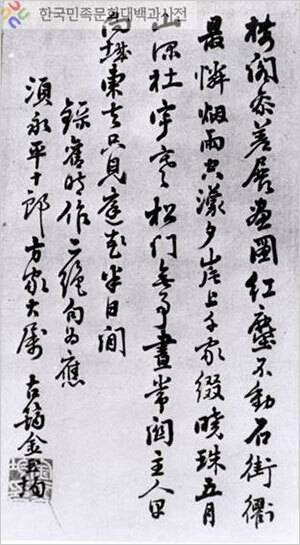 한국민족문화대백과사전
樓閣參差展畫圖紅塵不動石街衢
最憐烟雨空濛夕崖上千家綴曉珠五月
山深杜宇寒松门無事晝常関主人早
向城東去只見庭花半日间
錄舊時作二絶句为應
須永平十郎方家大屬 古筠金玉均